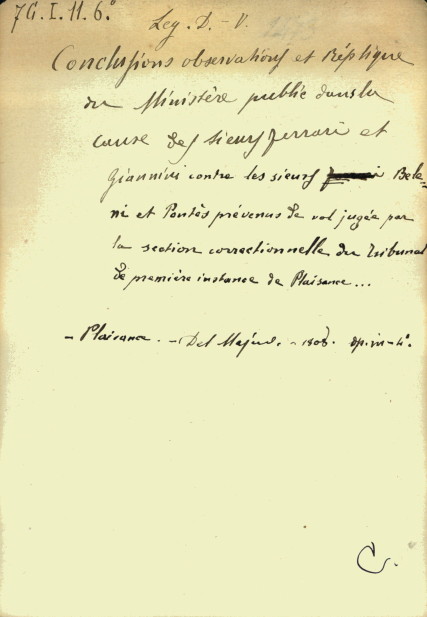 7G.I.11.6°
Leg. D. - V.
Conclusions observations et Réplique
du Ministère public dans la
cause des sieurs Ferrari et
Giannini contre les sieurs Bele=
ni et Pontès prévenus de vol jugée par
la section correctionnelle du Tribunal
de première instance de Plaisance...
- Plaisance. - Del Majno. - 1808. op. in-4°.
C.